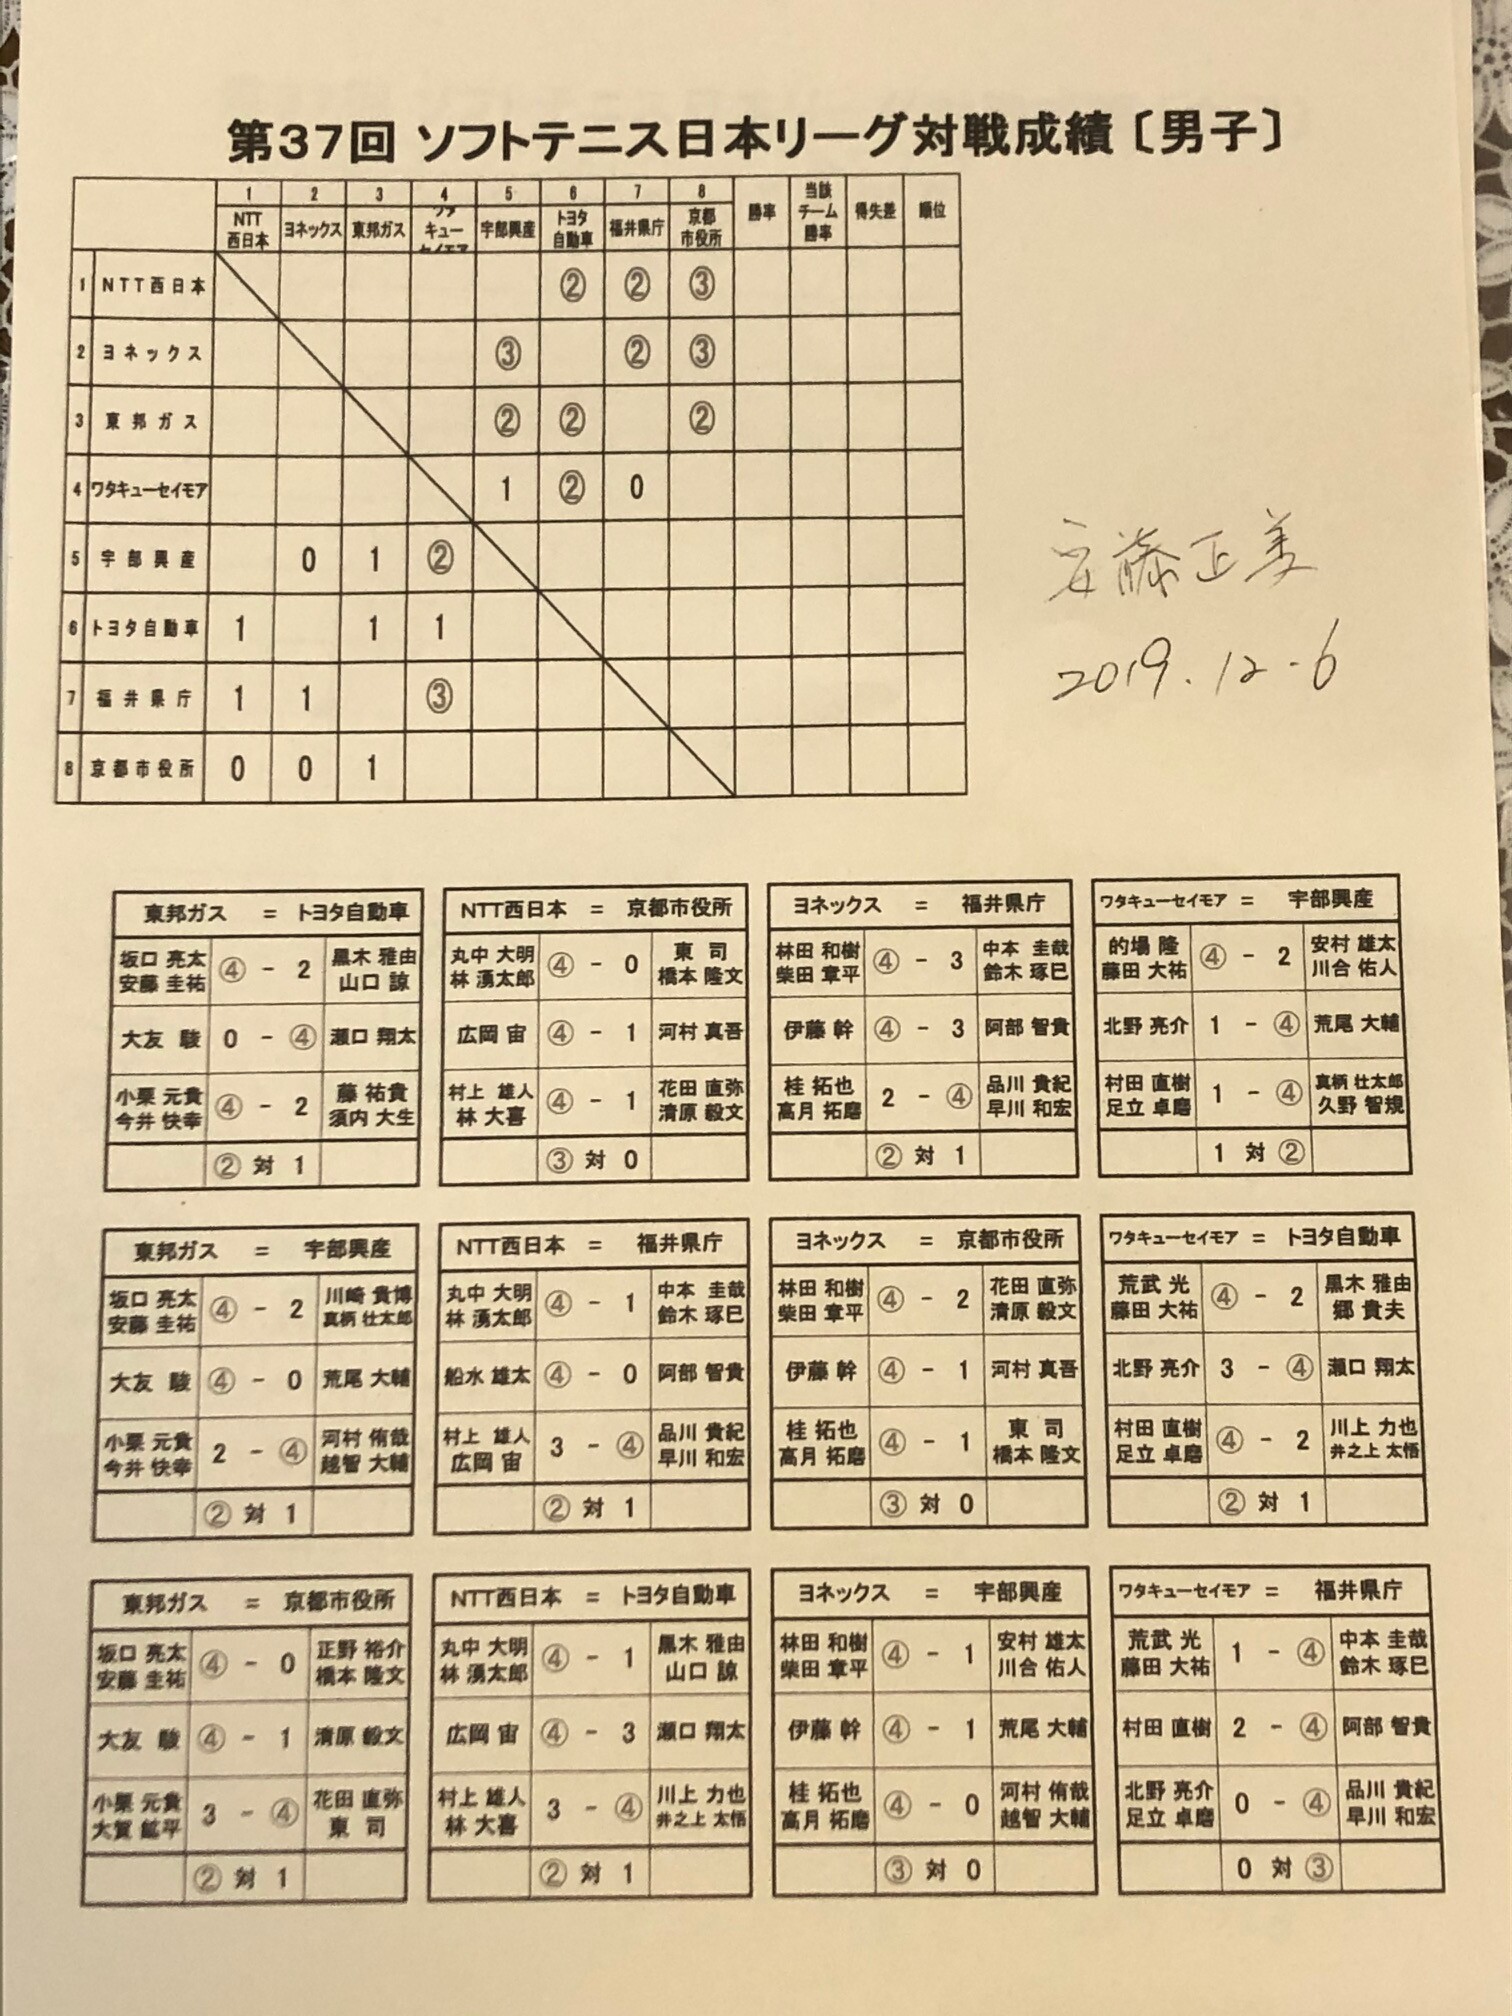 第37回 ソフトテニス日本リーグ対戦成績〔男子〕
1 2 3 4 5 6 7 8 勝率 当該チーム勝率 得失差 順位
NTT西日本 ヨネックス 東邦ガス ワタキューセイモア 宇部興産 トヨタ自動車 福井県庁 京都市役所
1 NTT西日本 ② ② ③
2 ヨネックス ③ ② ③
3 東邦ガス ② ② ②
4 ワタキューセイモア 1 ② 0
5 宇部興産 0 1 ②
6 トヨタ自動車 1 1 1
7 福井県庁 1 1 ③
8 京都市役所 0 0 1
安藤正美
2019.12-6
東邦ガス = トヨタ自動車
坂口 亮太 安藤 圭祐 ④ - 2 黒木 雅由 山口 諒
大友 駿 0 - ④ 瀬口 翔太
小栗 元貴 今井 快幸 ④ - 2 藤 祐貴 須内 大生
② 対 1
NTT西日本 = 京都市役所
丸中 大明 林 湧太郎 ④ - 0 東 司 橋本 隆文
広岡 宙 ④ - 1 河村 真吾
村上 雄人 林 大喜 ④ - 1 花田 直弥 清原 毅文
③ 対 0
ヨネックス = 福井県庁
林田 和樹 柴田 章平 ④ - 3 中本 圭哉 鈴木 琢巳
伊藤 幹 ④ - 3 阿部 智貴
桂 拓也 高月 拓磨 2 - ④ 品川 貴紀 早川 和宏
② 対 1
ワタキューセイモア = 宇部興産
的場 隆 藤田 大祐 ④ - 2 安村 雄太 川合 佑人
北野 亮介 1 - ④ 荒尾 大輔
村田 直樹 足立 卓磨 1 - ④ 真柄 壮太郎 久野 智規
1 対 ②
東邦ガス = 宇部興産
坂口 亮太 安藤 圭祐 ④ - 2 川崎 貴博 真柄 壮太郎
大友 駿 ④ - 0 荒尾 大輔
小栗 元貴 今井 快幸 2 - ④ 河村 侑哉 越智 大輔
② 対 1
NTT西日本 = 福井県庁
丸中 大明 林 湧太郎 ④ - 1 中本 圭哉 鈴木 琢巳
船水 雄太 ④ - 0 阿部 智貴
村上 雄人 広岡 宙 3 - ④ 品川 貴紀 早川 和宏
② 対 1
ヨネックス = 京都市役所
林田 和樹 柴田 章平 ④ - 2 花田 直弥 清原 毅文
伊藤 幹 ④ - 1 河村 真吾
桂 拓也 高月 拓磨 ④ - 1 東 司 橋本 隆文
③ 対 0
ワタキューセイモア = トヨタ自動車
荒武 光 藤田 大祐 ④ - 2 黒木 雅由 郷 貴夫
北野 亮介 3 - ④ 瀬口 翔太
村田 直樹 足立 卓磨 ④ - 2 川上 力也 井之上 太悟
② 対 1
東邦ガス = 京都市役所
坂口 亮太 安藤 圭祐 ④ - 0 正野 裕介 橋本 隆文
大友 駿 ④ - 1 清原 毅文
小栗 元貴 大賀 鉱平 3 - ④ 花田 直弥 東 司
② 対 1
NTT西日本 = トヨタ自動車
丸中 大明 林 湧太郎 ④ - 1 黒木 雅由 山口 諒
広岡 宙 ④ - 3 瀬口 翔太
村上 雄人 林 大喜 3 - ④ 川上 力也 井之上 太悟
② 対 1
ヨネックス = 宇部興産
林田 和樹 柴田 章平 ④ - 1 安村 雄太 川合 佑人
伊藤 幹 ④ - 1 荒尾 大輔
桂 拓也 高月 拓磨 ④ - 0 河村 侑哉 越智 大輔
③ 対 0
ワタキューセイモア = 福井県庁
荒武 光 藤田 大祐 1 - ④ 中本 圭哉 鈴木 琢巳
村田 直樹 2 - ④ 阿部 智貴
北野 亮介 足立 卓磨 0 - ④ 品川 貴紀 早川 和宏
0 対 ③